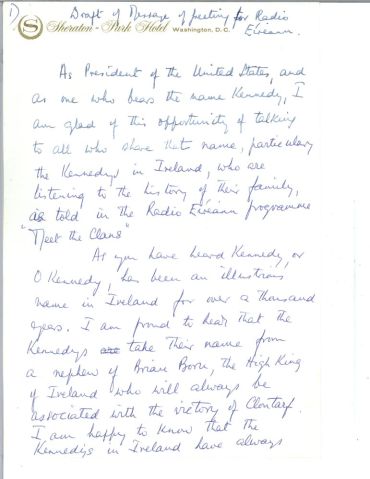 1) Draft of Message of greeting for Radio
Éireann.
S Sheraton-Park Hotel Washington, D.C.
As President of the United States, and
as one who bears the name Kennedy, I
am glad of this opportunity of talking
to all who share that name, particulary
the Kennedys in Ireland, who are
listening to the history of their family,
as told in the Radio Éireann programme
"Meet the Clans"
As you have heard Kennedy, or
O Kennedy, has been an illustrious
name in Ireland for over a thousand
years. I am proud to hear that the
Kennedys are take their name from
a nephew of Brian Boru, the High King
of Ireland who will always be
associated with the victory of Clontarf.
I am happy to know that the
Kennedys in Ireland have always